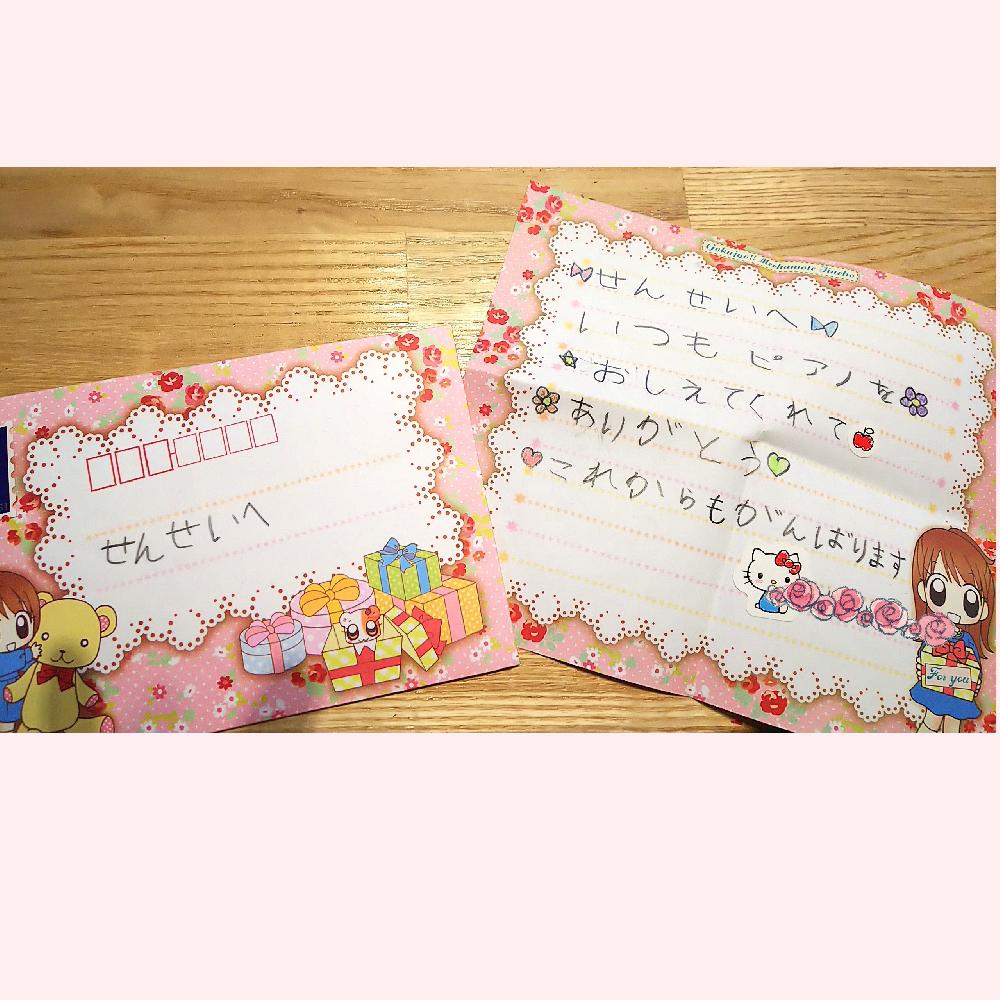 せんせいへ
せんせいへ
いつもピアノを
おしえてくれて
ありがとう
これからもがんばります
For you